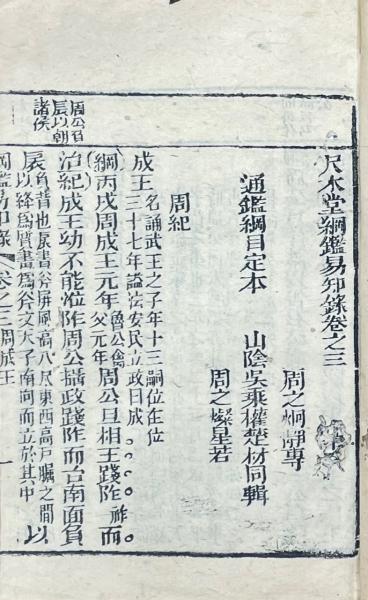 尺木堂綱鑑易知錄卷之三
通鑑綱目定本
山陰吳乘權楚材同輯
周之炯靜專
周之燦星若
周紀
成王
名誦武王之子年十三嗣位在位
三十七年諡法安民立政曰成
綱丙戌周成王元年
魯公禽
父元年
周公旦相王踐阼
祚
而
治紀成王幼不能涖阼周公攝政踐阼而治南面負
扆
負背也扆書斧屏風高八尺東西當戶牖之間
以絳爲質書爲斧文天子南向而立於其中
以
周公負
扆以朝
諸侯
綱鑑易知錄
卷之三
周成王
一